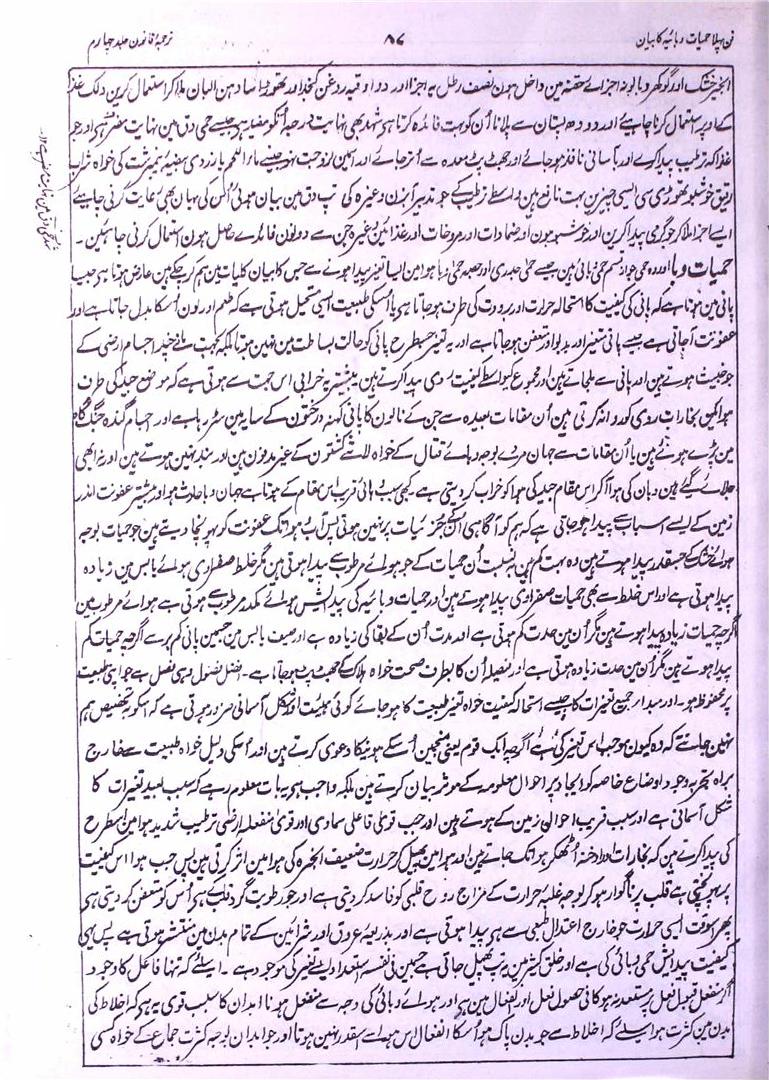 فن پہلا حمیات وبائیہ کا بیان
۸۷
ترجمۂ قانون جلد چہارم
انجیر خشک اور گوکھرو بابونہ اجزاے حقنہ مین داخل ہون نصف رطل یہ اجزا اور دو اوقیہ روغن کنجد اور تھوڑا سا دہن البان ملا کر استعمال کرین
کے اوپر استعمال کرنا چاہیے اور دودھ پستان سے پلانا اُن کو بہت فائدہ کرتا ہی شہد بھی نہایت درجہ انکو مفید ہی جیسے حمی دق مین نہایت مضر ہی اور جو
غذا کہ ترطیب پیدا کرے اور بآسانی نافذ ہو جائے اور جھٹ پٹ معدہ سے اُتر جائے اور اسمین لزوجت نہو جیسے ماء اللحم یا زردی بیضۂ نیمبرشت کی خواہ شراب
رقیق خوشبو تھوڑی سی ایسی چیزین بہت نافع ہین واسطے ترطیب کے جو تدبیر آبزن وغیرہ کی تپ دق مین بیان ہوئی اُس کی یہان بھی رعایت کرنی چاہیے
ایسے اجزا ملا کر جو گرمی پیدا کرین اور خوشبو ہون اور ضمادات اور مروخات اور غذائین وغیرہ جن سے دونون فائدے حاصل ہون استعمال کرنی چاہئین۔
حمیات وبا اور وہ حمی جو از قسم حمی وبائی ہین جیسے حمی جدری اور حصبہ حمی وبا ہوا مین ایسا تغیر پیدا ہونے سے جس کا بیان کلیات مین ہم کر چکے ہین عارض ہوتا ہی جیسا
پانی مین ہوتا ہے کہ پانی کی کیفیت کا استحالہ حرارت اور برودت کی طرف ہو جاتا ہی یا اُسکی طبیعت ایسی مستحیل ہوتی ہے کہ طعم اور لون اُسکا بدل جاتا ہے اور
عفونت آ جاتی ہے جیسے پانی متغیر اور بدبو اور متعفن ہو جاتا ہے اور یہ تغیر جسطرح پانی کو حالت بساطت مین نہین ہوتا بلکہ بجہت ملنے چند اجسام ارضی کے
جو خبیث ہوتے ہین اور پانی سے ملجاتے ہین اور مجموع کو واسطے کیفیت ردی پیدا کرتے ہین بیشتر یہ خرابی اس جہت سے ہوتی ہے کہ موضع جید کی طرف
ہوائین بخارات ردی کو روانہ کرتی ہین اُن مقامات بعیدہ سے جن کے نالون کا پانی کہنہ درختون کے سایہ مین سڑ رہا ہے اور اجسام گندہ جنگ گاہ
مین پڑے ہوئے ہین یا اُن مقامات سے جہان مردے بوجہ وبا کے قتال کے خواہ لاشے کشتون کے غیر مدفون ہین اور نہین ہوتے ہین اور نہ ابھی
جلائے گئے ہین وہان کی ہوا آ کر اس مقام جید کی ہوا کو خراب کر دیتی ہے کبھی سبب وبائی قریب اس مقام کے ہوتا ہے جہان وبا حادث ہو اور بیشتر عفونت اندر
زمین کے ایسے اسباب سے پیدا ہو جاتی ہے کہ ہم کو آگاہی اُن کے جزئیات پر نہین ہوتی پس آب و ہوا تک عفونت کو پہونچا دیتے ہین جو حمیات بوجہ
ہوائے خشک کے جسقدر پیدا ہوتے ہین وہ بہت کم ہین بہ نسبت اُن حمیات کے جو ہوائے مرطوب سے پیدا ہوتی ہین مگر خلط صفراوی ہوائے یابس مین زیادہ
پیدا ہوتی ہے اور اس خلط سے بھی حمیات صفراوی پیدا ہوتے ہین اور حمیات وبائیہ کی پیدائش ہوائے مکدر مرطوب سے ہوتی ہے ہوائے مرطوب مین
اگرچہ حمیات زیادہ پیدا ہوتے ہین مگر اُن مین حدت کم ہوتی ہے اور مدت اُن کے بقا کی زیادہ ہے اور صیف یابس مین جسمین پانی کم برسے اگرچہ حمیات کم
پیدا ہوتے ہین مگر اُن مین حدت زیادہ ہوتی ہے اور فیصلہ اُن کا بطرف صحت خواہ ہلاک کے جھٹ پٹ ہو جاتا ہے۔ افضل فصول وہی فصل ہے جو اپنی طبیعت
پر محفوظ ہو۔ اور مبدا جمیع تغیرات کا جیسے استحالہ کیفیت خواہ تغیر طبیعت کا ہو جائے کوئی ہیئت اور شکل آسمانی ضرور ہوتی ہے کہ اسکو بہ تخصیص ہم
نہین جانتے کہ وہ کیون موجب اس تغیر کی ہے اگرچہ ایک قوم یعنی منجمین اُسکے ہونیکا دعوی کرتے ہین اور اُسکی دلیل خواہ طبیعت سے خارج
براہ تجربہ وجود اوضاع خاصہ کو ایجاد پر احوال معلومہ کے موثر بیان کرتے ہین بلکہ واجب ہی یہ بات معلوم رہے کہ سبب بعید تغیرات کا
شکل آسمانی ہے اور سبب قریب احوال زمین کے ہوتے ہین اور جب قوای فاعلی سماوی اور قوای منفعلہ ارضی ترطیب شدید ہوا مین اسطرح
کی پیدا کرتے ہین کہ بخارات اور ادخنہ اُٹھکر ہوا تک جاتے ہین اور ہوا مین پھیل کر حرارت ضعیف ابخرہ کی ہوا مین اثر کرتی ہین پس جب ہوا اس کیفیت
پر پہونچتی ہے قلب پر ناگوار ہو کر بوجہ غلبۂ حرارت کے مزاج روح قلبی کو فاسد کر دیتی ہے اور جو رطوبت گرد قلب کے ہی اُس کو متعفن کر دیتی ہی
پھر اسوقت ایسی حرارت جو خارج اعتدال طبعی سے ہی پیدا ہوتی ہے اور بذریعۂ عروق اور شرائین کے تمام بدن مین منتشر ہوتی ہے پس یہی
کیفیت پیدائش حمی وبائی کی ہے اور خلق کثیر مین یہ تپ پھیل جاتی ہے جسمین فی نفسہ استعداد ایسے تغیر کی موجود ہے۔ اسلیے کہ تنہا فاعل کا وجود
اگر منفعل قبول فعل پر مستعد نہو کافی حصول فعل اور انفعال مین نہین اور ہوائے وبائی کی وجہ سے منفعل ہونا ابدان کا سبب قوی یہ ہی کہ اخلاط کی
بدن مین کثرت ہو اسلیے کہ اخلاط سے جو بدن پاک ہو اُسکا انفعال اس ہوا سے اسقدر نہین ہوتا اور جو ابدان بوجہ کثرت جماع کے خواہ کسی